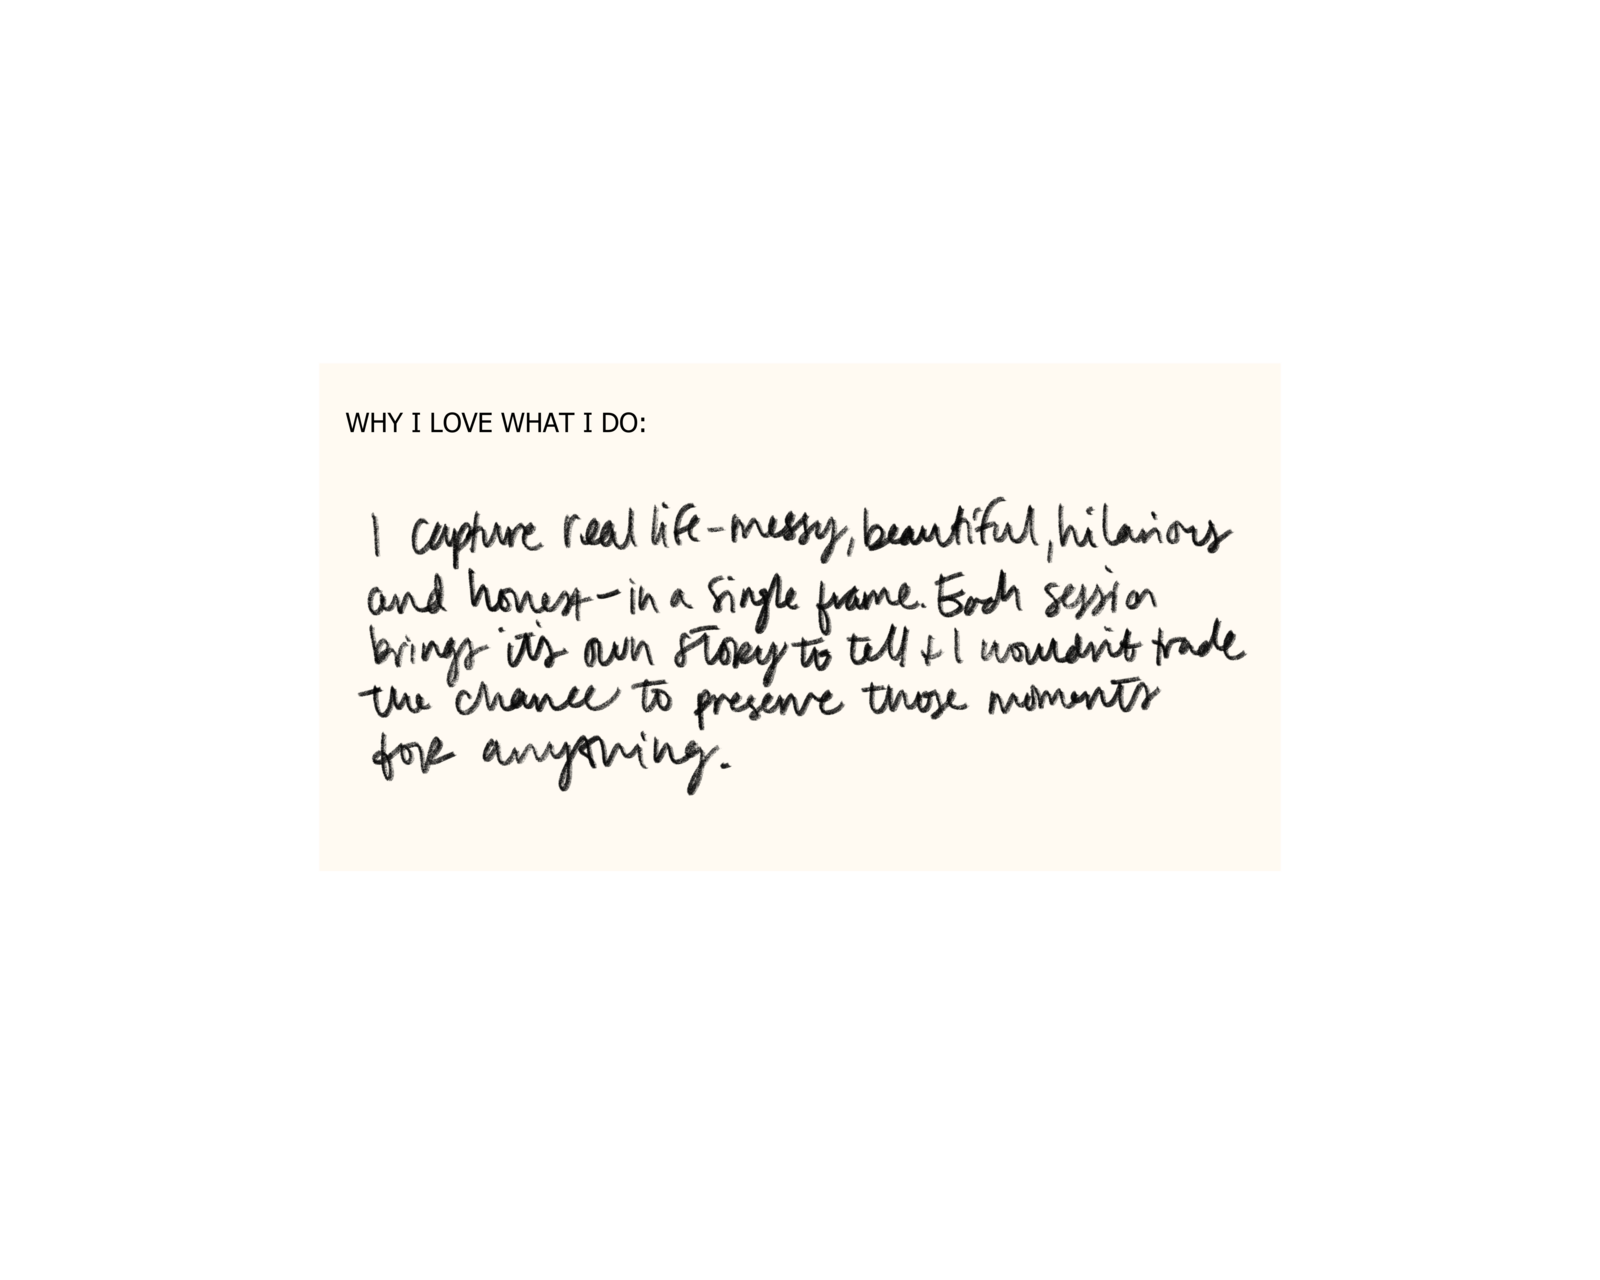 WHY I LOVE WHAT I DO:
I capture real life-messy, beautiful, hilarious
and honest-in a single frame. Each session
brings it's own story to tell & I wouldn't trade
the chance to preserve those moments
for anything.